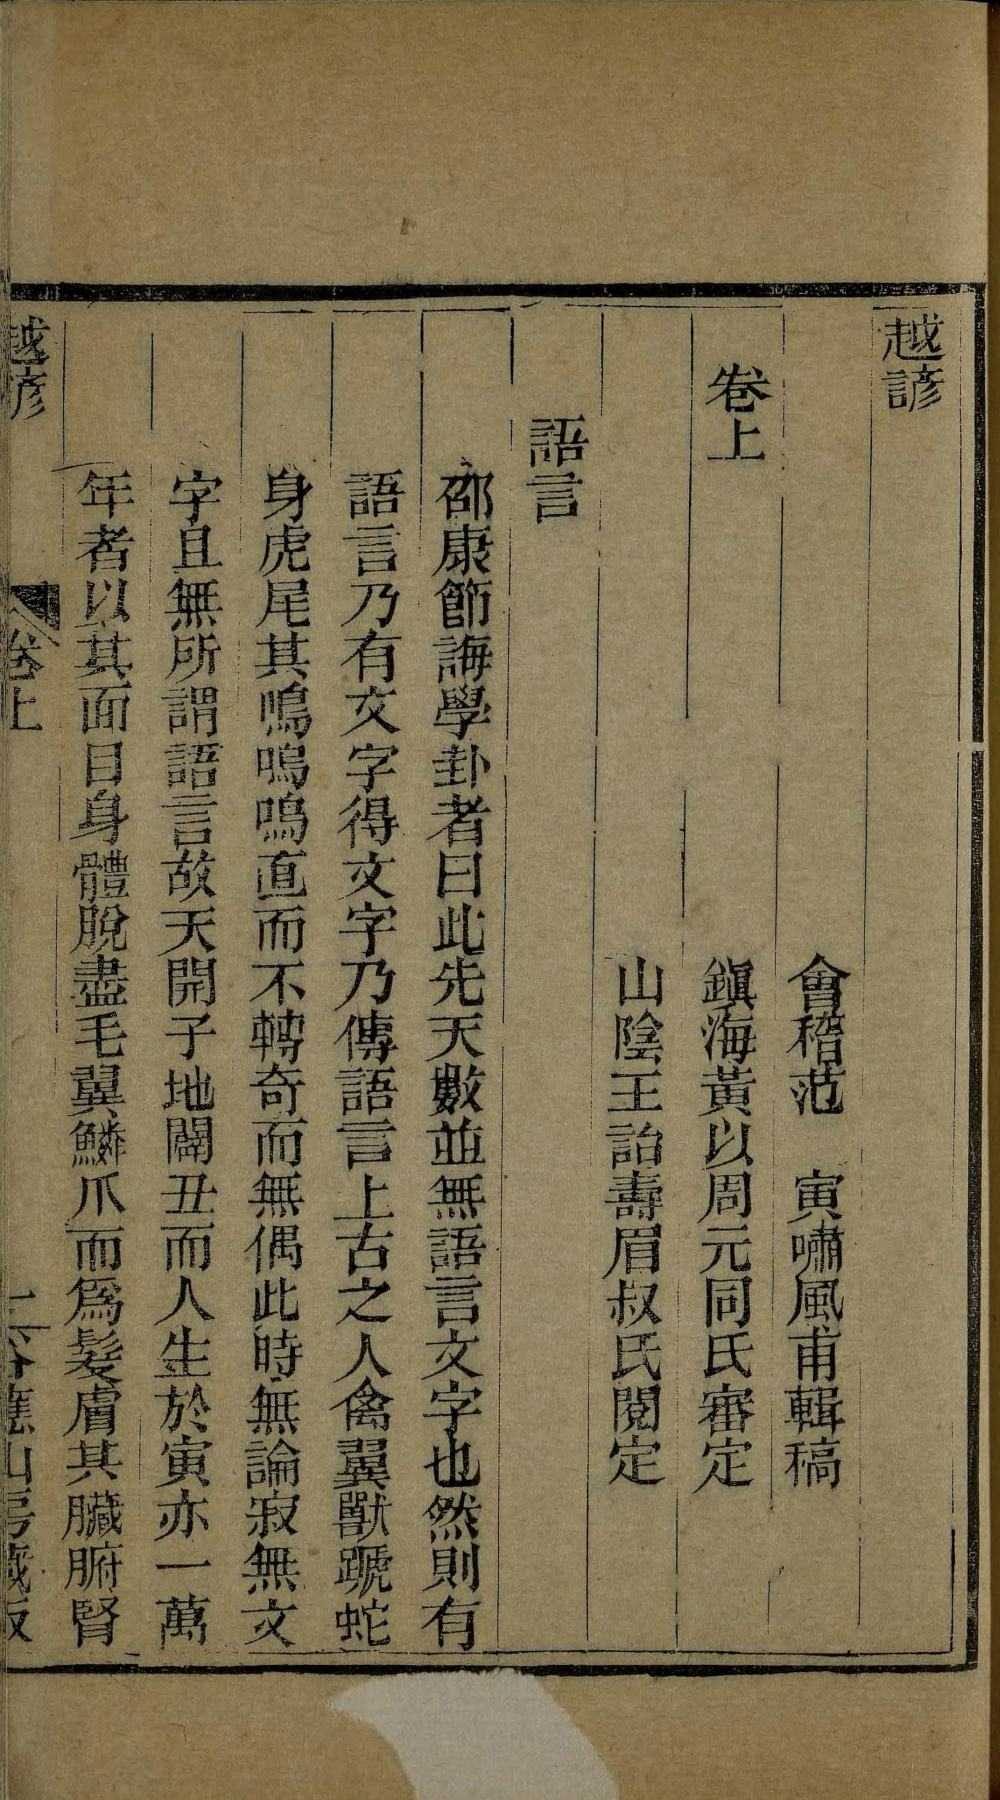 越諺
會稽范　寅嘯風甫輯稿
卷上　鎭海黃以周元同氏審定
山陰王詒壽眉叔氏閱定
語言
邵康節誨學卦者曰此先天數並無語言文字也然則有
語言乃有文字得文字乃傳語言上古之人禽翼獸蹏蛇
身虎尾其鳴嗚嗚直而不轉奇而無偶此時無論寂無文
字且無所謂語言故天開子地闢丑而人生於寅亦一萬
年者以其面目身體脫盡毛翼鱗爪而爲髮膚其臟腑腎
越諺　卷上　一　谷應山房藏板